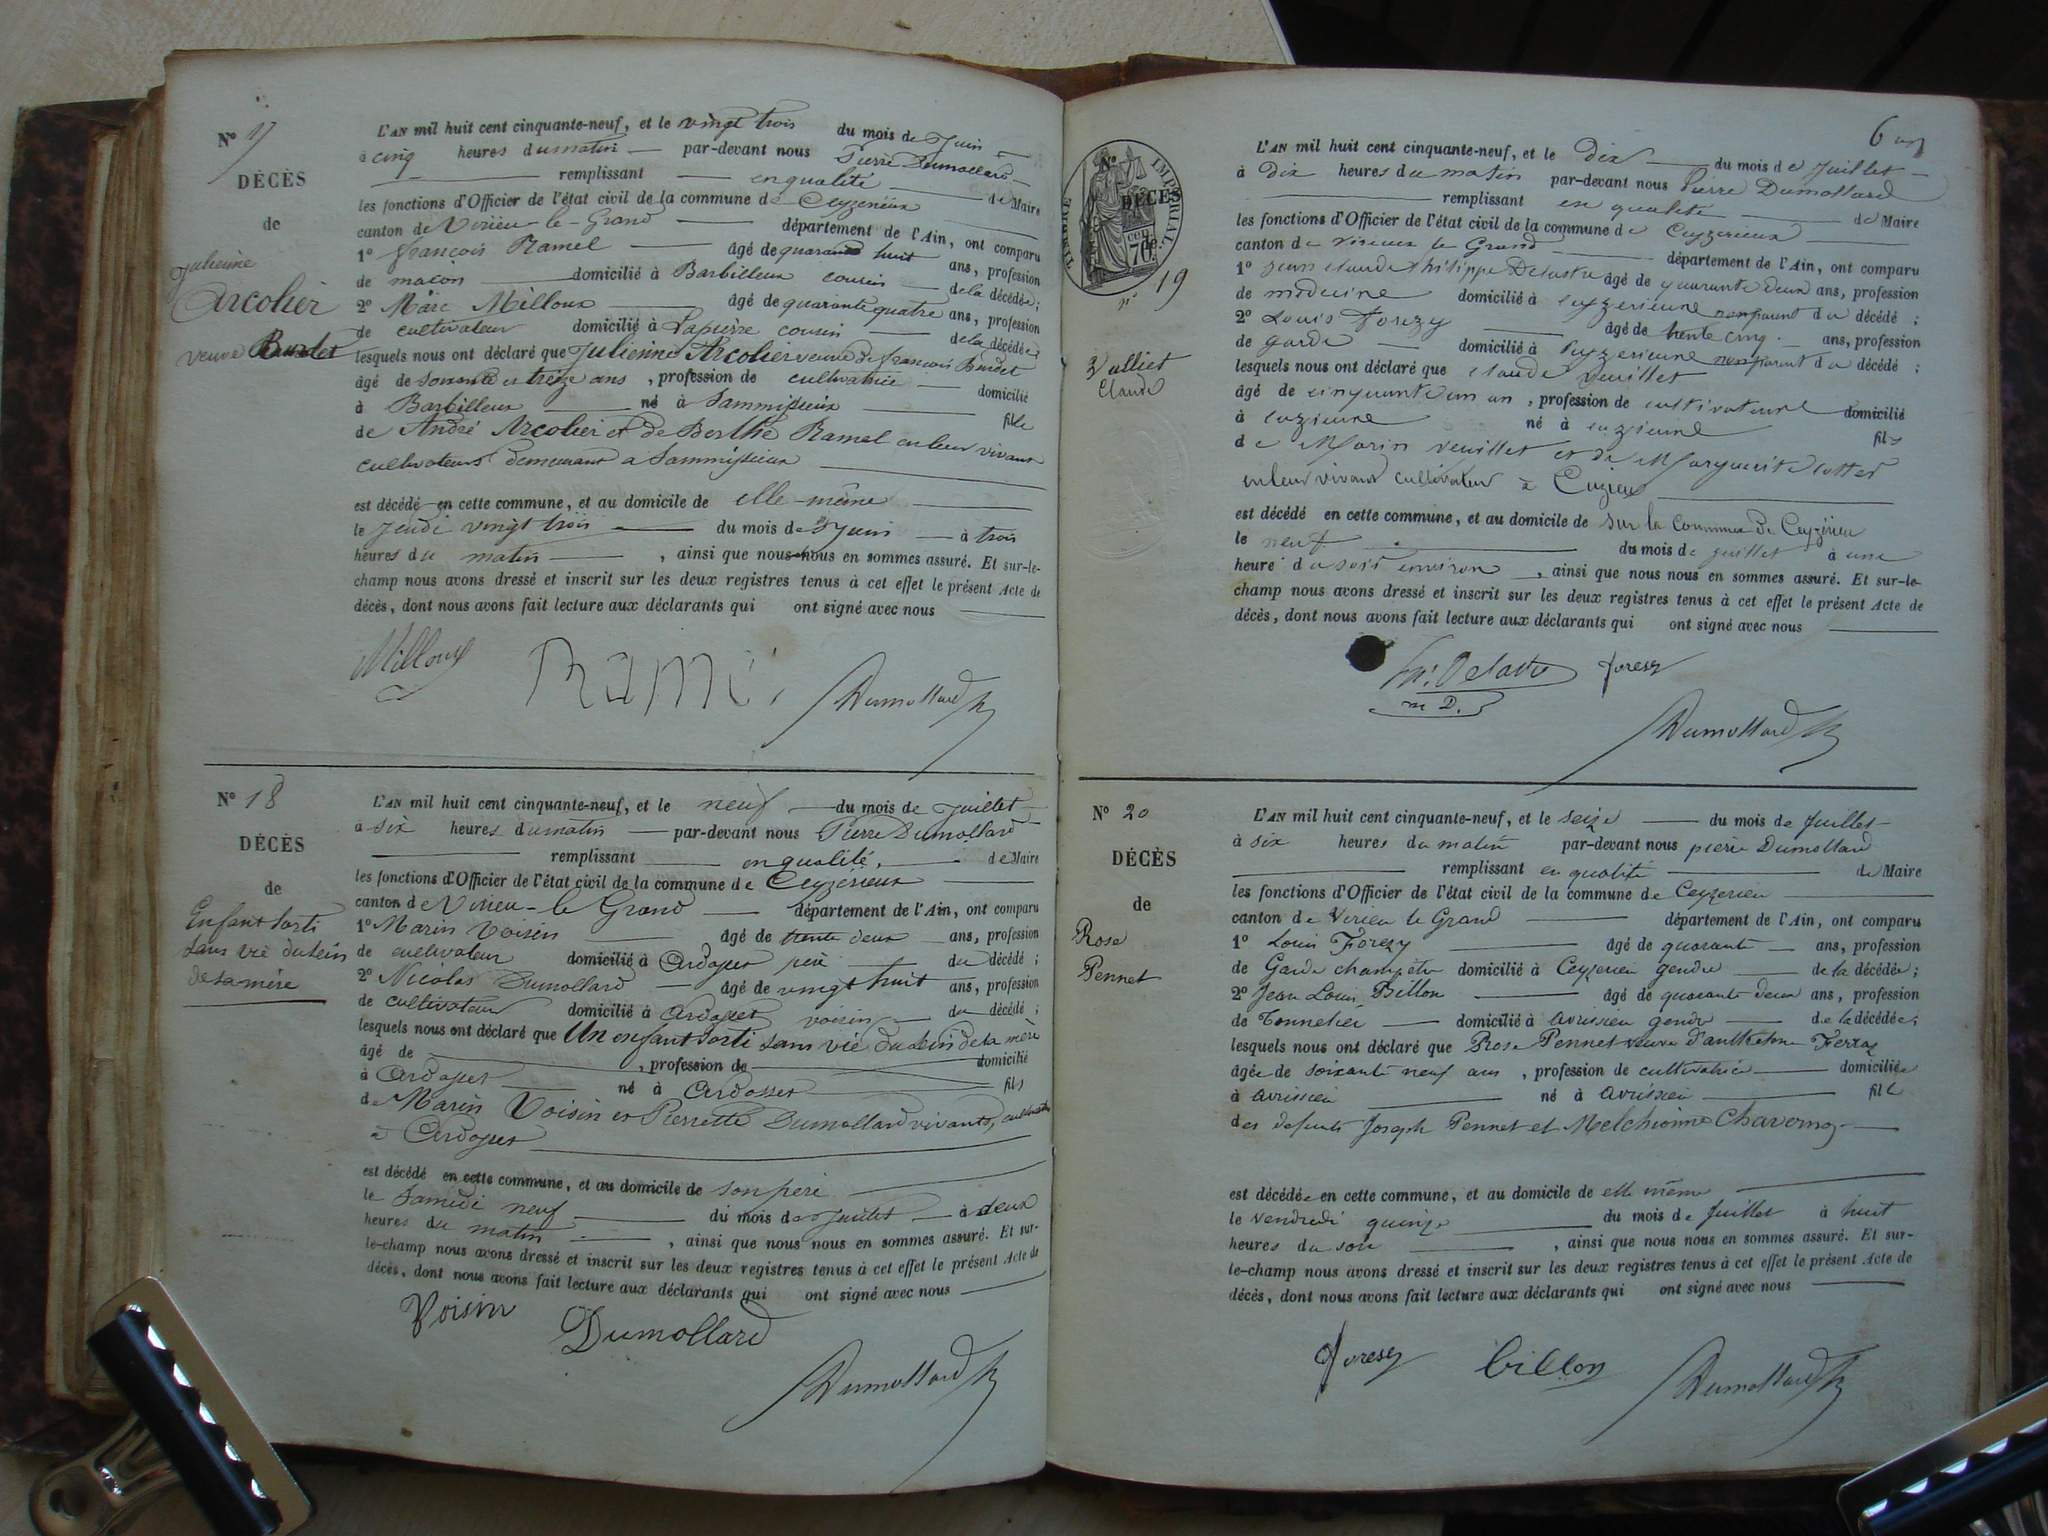 N° 17
DÉCÈS
de
Julienne
Arcolier
veuve Burdet
L'AN mil huit cent cinquante-neuf, et le vingt trois du mois de Juin
à cinq heures du matin par-devant nous Pierre Dumollard
remplissant en qualité de Maire
les fonctions d'Officier de l'état civil de la commune de Ceyzérieux
canton de Virieu-le-Grand département de l'Ain, ont comparu
1° françois Ramel âgé de quarante huit ans, profession
de maçon domicilié à Barbilleux cousin de la décédée;
2° Marc Milloux âgé de quarante quatre ans, profession
de cultivateur domicilié à Lapierre cousin de la décédée
lesquels nous ont déclaré que Julienne Arcolier veuve de françois Burdet
âgé de soixante et treize ans, profession de cultivatrice domicilié
à Barbilleux né à Sammissieux fille
de André Arcolier et de Berthe Ramel en leur vivant
cultivateurs demeurant à Sammissieux
est décédé en cette commune, et au domicile de elle-même
le Jeudi vingt trois du mois de Juin à trois
heures du matin, ainsi que nous nous en sommes assuré. Et sur-le-
champ nous avons dressé et inscrit sur les deux registres tenus à cet effet le présent Acte de
décès, dont nous avons fait lecture aux déclarants qui ont signé avec nous
Milloux Ramel Dumollard
N° 18
DÉCÈS
de
Enfant sorti
sans vie du sein
de sa mère
L'AN mil huit cent cinquante-neuf, et le neuf du mois de Juillet
à six heures du matin par-devant nous Pierre Dumollard
remplissant en qualité de Maire
les fonctions d'Officier de l'état civil de la commune de Ceyzérieux
canton de Virieu-le Grand département de l'Ain, ont comparu
1° Marin Voisin âgé de trente deux ans, profession
de cultivateur domicilié à Ardosset père du décédé;
2° Nicolas Dumollard âgé de vingt huit ans, profession
de cultivateur domicilié à Ardosset voisin du décédé;
lesquels nous ont déclaré que Un enfant sorti sans vie du sein de sa mère
âgé de, profession de domicilié
à Ardosset né à Ardosset fils
de Marin Voisin et Pierrette Dumollard vivants, cultivateurs
à Ardosset
est décédé en cette commune, et au domicile de son père
le Samedi neuf du mois de Juillet à deux
heures du matin, ainsi que nous nous en sommes assuré. Et sur-
le-champ nous avons dressé et inscrit sur les deux registres tenus à cet effet le présent Acte de
décès, dont nous avons fait lecture aux déclarants qui ont signé avec nous
Voisin Dumollard
Dumollard
TIMBRE IMPÉRIAL
N°
DÉCÈS
de
70 cen
n° 19
Vulliet
Claude
L'AN mil huit cent cinquante-neuf, et le dix du mois de Juillet
à dix heures du matin par-devant nous Pierre Dumollard
remplissant en qualité de Maire
les fonctions d'Officier de l'état civil de la commune de Ceyzerieux
canton de Virieux le Grand département de l'Ain, ont comparu
1° jean claude philippe Delastre âgé de quarante deux ans, profession
de médecine domicilié à ceyzerieux non parent du décédé;
2° Louis forezy âgé de trente cinq ans, profession
de garde domicilié à ceyzerieux non parent du décédé;
lesquels nous ont déclaré que claude veuillet
âgé de cinquante un an, profession de cultivateur domicilié
à cuzieux né à cuzieux fils
de Marin veuillet et de Marguerite
en leur vivant cultivateur à Cuzieux
est décédé en cette commune, et au domicile de sur la commune de Ceyzérieu
le neuf du mois de juillet à une
heure du soir environ, ainsi que nous nous en sommes assuré. Et sur-le-
champ nous avons dressé et inscrit sur les deux registres tenus à cet effet le présent Acte de
décès, dont nous avons fait lecture aux déclarants qui ont signé avec nous
Delastre forezy
m D.
Dumollard
N° 20
DÉCÈS
de
Rose
Pennet
L'AN mil huit cent cinquante-neuf, et le seize du mois de Juillet
à six heures du matin par-devant nous pierre Dumollard
remplissant en qualité de Maire
les fonctions d'Officier de l'état civil de la commune de Ceyzerieu
canton de Virieu le Grand département de l'Ain, ont comparu
1° Louis Forezy âgé de quarante ans, profession
de Garde champêtre domicilié à Ceyzerieu gendre de la décédée;
2° Jean Louis Billon âgé de quarante deux ans, profession
de Tonnelier domicilié à avrissieu gendre de la décédée;
lesquels nous ont déclaré que Rose Pennet veuve d'anthelme Ferraz
âgée de soixante neuf ans, profession de cultivatrice domiciliée
à avrissieu né à avrissieu fille
des defunts Joseph Pennet et Melchionne Charvomoz
est décédée en cette commune, et au domicile de elle même
le vendredi quinze du mois de Juillet à huit
heures du soir, ainsi que nous nous en sommes assuré. Et sur-
le-champ nous avons dressé et inscrit sur les deux registres tenus à cet effet le présent Acte de
décès, dont nous avons fait lecture aux déclarants qui ont signé avec nous
forezy billon Dumollard